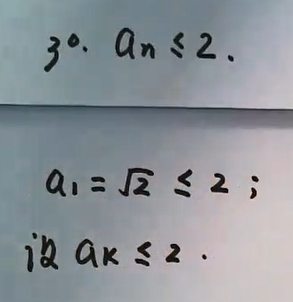 3°. an ≤ 2.
a₁ = √2 ≤ 2 ;
设 aₖ ≤ 2 .